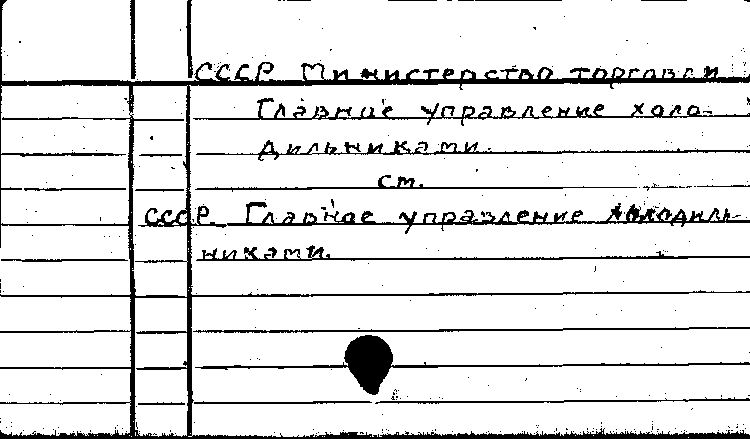 СССР. Министерство торговли
Главное управление холо-
дильниками.
см.
СССР. Главное управление холодиль-
никами.